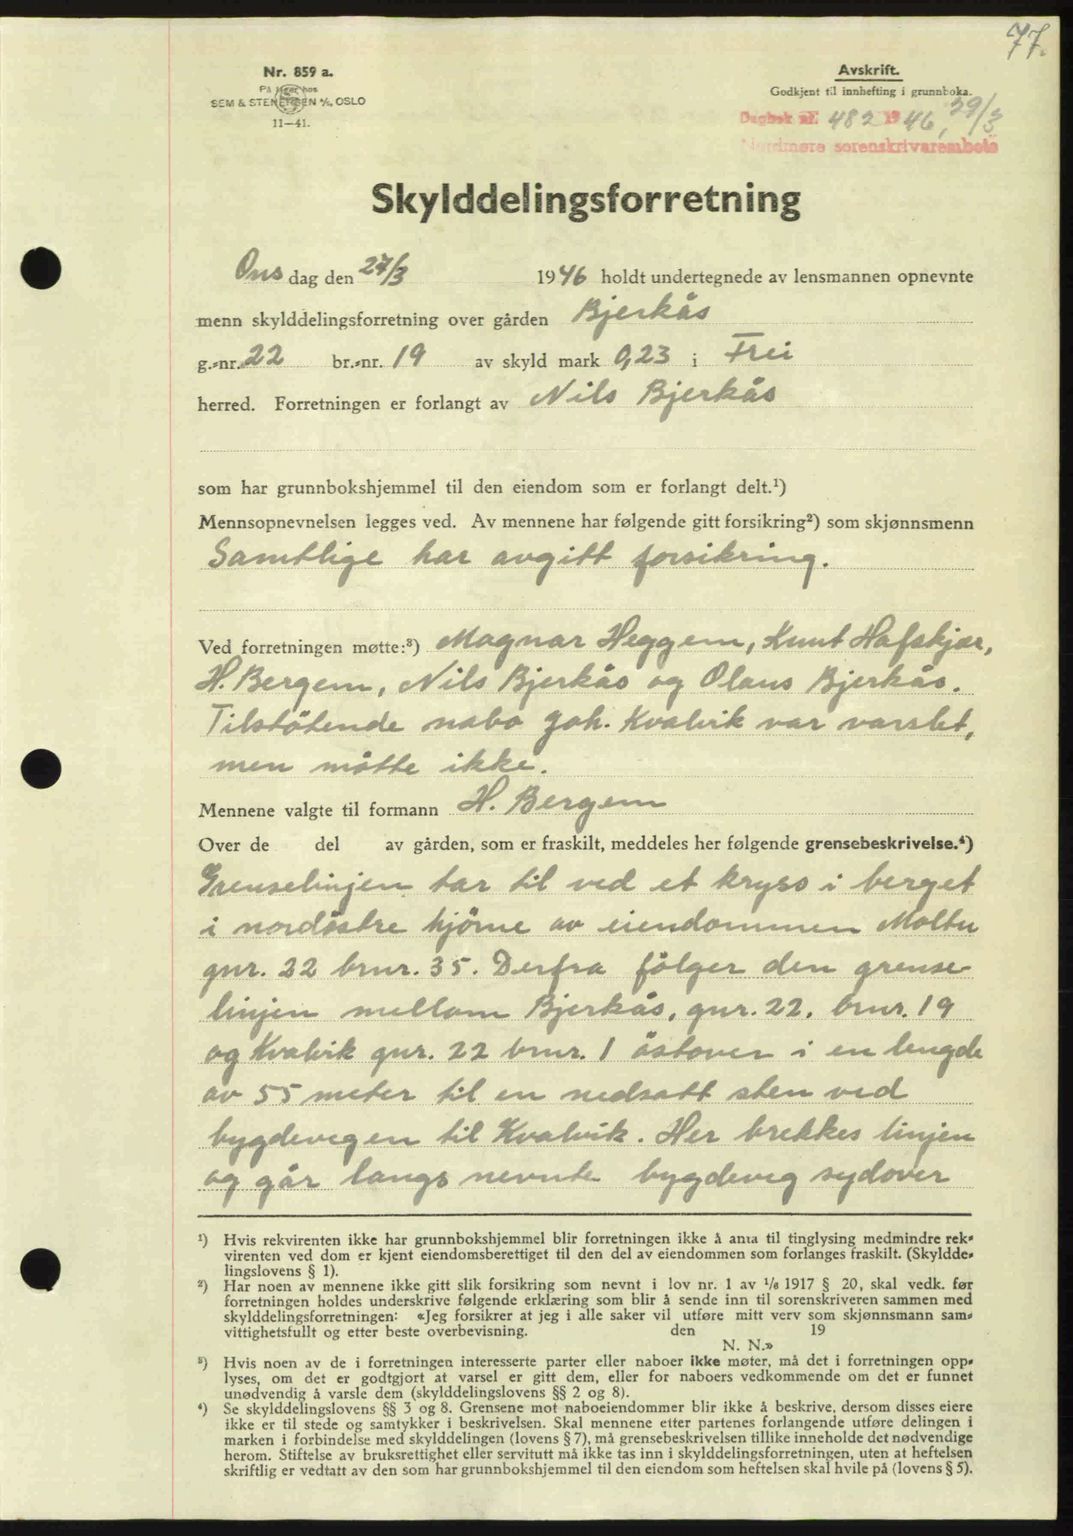 77.
Nr. 859 a.
På lager hos
SEM & STENERSEN A/S, OSLO
11—41.
Avskrift.
Godkjent til innhefting i grunnboka.
Dagbok nr. 482 1946, 29/3
Nordmøre sorenskrivarembete
Skylddelingsforretning
Ons dag den 27/3 1946 holdt undertegnede av lensmannen opnevnte
menn skylddelingsforretning over gården Bjerkås
g.-nr. 22 br.-nr. 19 av skyld mark 0,23 i Frei
herred. Forretningen er forlangt av Nils Bjerkås
som har grunnbokshjemmel til den eiendom som er forlangt delt.¹)
Mennsopnevnelsen legges ved. Av mennene har følgende gitt forsikring²) som skjønnsmenn
Samtlige har avgitt forsikring.
Ved forretningen møtte:³) Magnar Heggem, Knut Hafskjær,
H. Bergem, Nils Bjerkås og Olaus Bjerkås.
Tilstötende nabo Joh. Kvalvik var varslet,
men mötte ikke.
Mennene valgte til formann H. Bergem
Over de del av gården, som er fraskilt, meddeles her følgende grensebeskrivelse.⁴)
Grenselinjen tar til ved et kryss i berget
i nordöstre hjörne av eiendommen Moltu
gnr. 22 brnr. 35. Derfra fölger den grense-
linjen mellom Bjerkås, gnr. 22, brnr. 19
og Kvalvik gnr. 22 brnr. 1 östover i en lengde
av 55 meter til en nedsatt sten ved
bygdevegen til Kvalvik. Her brekkes linjen
og går langs nevnte bygdeveg sydover
¹) Hvis rekvirenten ikke har grunnbokshjemmel blir forretningen ikke å anta til tinglysing medmindre rek-
virenten ved dom er kjent eiendomsberettiget til den del av eiendommen som forlanges fraskilt. (Skyldde-
lingslovens § 1).
²) Har noen av mennene ikke gitt slik forsikring som nevnt i lov nr. 1 av 1/6 1917 § 20, skal vedk. før
forretningen holdes underskrive følgende erklæring som blir å sende inn til sorenskriveren sammen med
skylddelingsforretningen: «Jeg forsikrer at jeg i alle saker vil utføre mitt verv som skjønnsmann sam-
vittighetsfullt og etter beste overbevisning. den 19
N. N.»
³) Hvis noen av de i forretningen interesserte parter eller naboer ikke møter, må det i forretningen opp-
lyses, om det er godtgjort at varsel er gitt dem, eller for naboers vedkommende om det er funnet
unødvendig å varsle dem (skylddelingslovens §§ 2 og 8).
⁴) Se skylddelingslovens §§ 3 og 8. Grensene mot naboeiendommer blir ikke å beskrive, dersom disses eiere
ikke er til stede og samtykker i beskrivelsen. Skal mennene etter partenes forlangende utføre delingen i
marken i forbindelse med skylddelingen (lovens § 7), må grensebeskrivelsen tillike inneholde det nødvendige
herom. Stiftelse av bruksrettighet eller servitutt må ikke tas inn i skylddelingsforretningen, uten at heftelsen
skriftlig er vedtatt av den som har grunnbokshjemmel til den eiendom som heftelsen skal hvile på (lovens § 5).